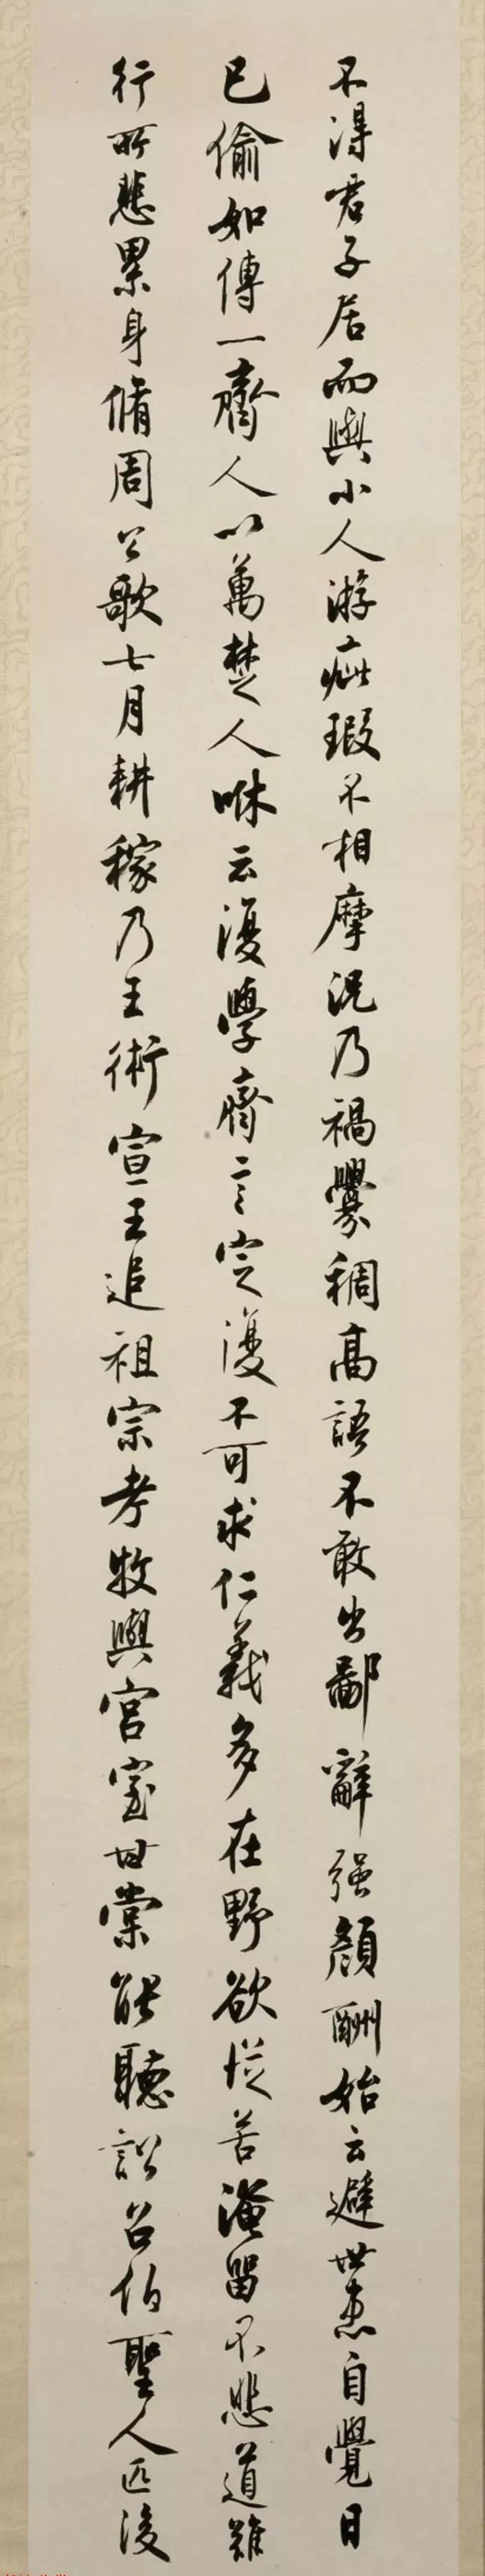 不得君子居而與小人游疵瑕不相摩況乃禍釁稠高語不敢出鄙辭强顏酬始云避世患自覺日
已偷如傅一齊人以萬楚人咻云復學齊言定復不可求仁義多在野欲從苦淹留不悲道難
行所悲累身脩周公歌七月耕稼乃王術宣王追祖宗考牧與宮室甘棠能聽訟召伯聖人匹後